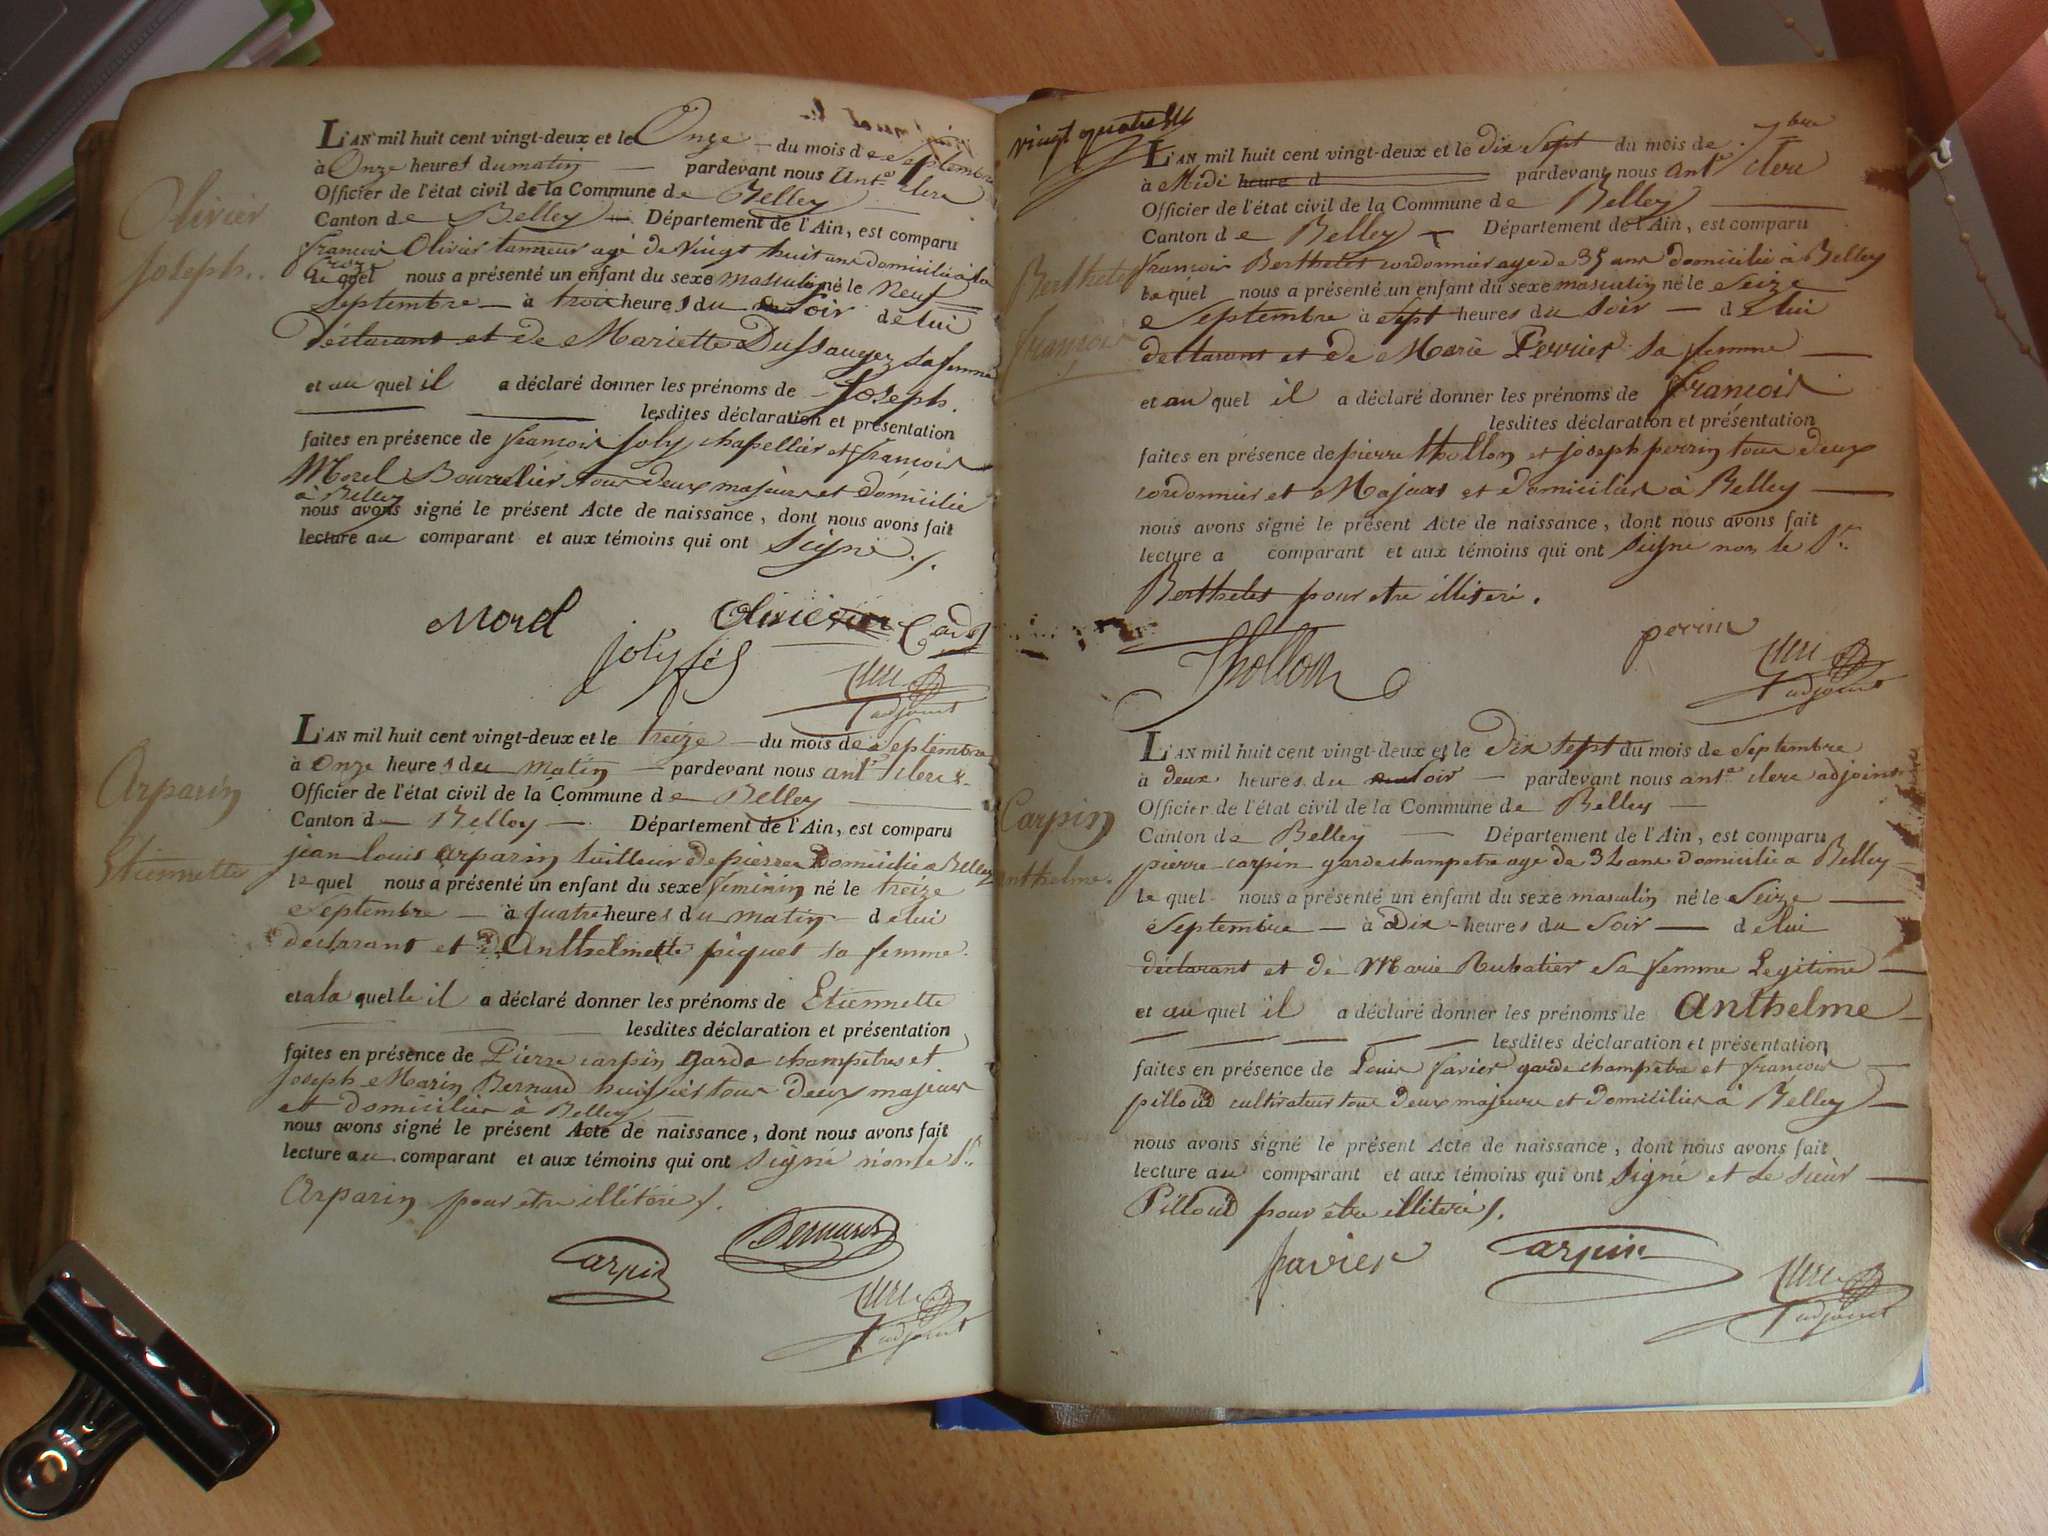 Olivier
Joseph.
L'AN mil huit cent vingt-deux et le Onze du mois de Septembre
à Onze heures du matin pardevant nous Ant.e clerc
Officier de l'état civil de la Commune de Belley
Canton de Belley Département de l'Ain, est comparu
françois Olivier tanneur agé de Vingt huit ans domicilié à la
le quel nous a présenté un enfant du sexe masculin né le Neuf
Septembre à trois heures du Soir de lui
déclarant et de Mariette Dussauges sa femme
et au quel il a déclaré donner les prénoms de Joseph.
lesdites déclaration et présentation
faites en présence de françois Joly chapellier et françois
Morel Bourrelier tous deux majeurs et domicilié
à Belley
nous avons signé le présent Acte de naissance, dont nous avons fait
lecture au comparant et aux témoins qui ont signé.
Morel Olivier Cadet
Joly fçs
Clerc
adjoint
Arparin
Etiennette
L'AN mil huit cent vingt-deux et le treize du mois de Septembre
à Onze heures du matin pardevant nous ant.e clerc
Officier de l'état civil de la Commune de Belley
Canton de Belley Département de l'Ain, est comparu
jean louis arparin tailleur de pierre Domicilié a Belley
le quel nous a présenté un enfant du sexe feminin né le treize
Septembre à quatre heures du matin de lui
déclarant et d'Anthelmette piquet sa femme.
et a la quelle il a déclaré donner les prénoms de Etiennette
lesdites déclaration et présentation
faites en présence de Pierre carpin garde champetres et
joseph Marin Bernard huissier tous deux majeurs
et domiciliés à Belley
nous avons signé le présent Acte de naissance, dont nous avons fait
lecture au comparant et aux témoins qui ont signé non le Sr.
Arparin pour être illitéré.
Carpin Bernard
Clerc
adjoint
vingt quatre
Berthelet
françois
L'AN mil huit cent vingt-deux et le dix Sept du mois de 7bre
à Midi heure d pardevant nous ant.e clerc
Officier de l'état civil de la Commune de Belley
Canton de Belley Département de l'Ain, est comparu
françois Berthelet cordonnier age de 35 ans domicilié à Belley
le quel nous a présenté un enfant du sexe masculin né le Seize
Septembre à sept heures du Soir de lui
declarant et de Marie Perrier sa femme
et au quel il a déclaré donner les prénoms de françois
lesdites déclaration et présentation
faites en présence de pierre thollon et joseph perrin tous deux
cordonnier et Majeurs et domiciliés à Belley
nous avons signé le présent Acte de naissance, dont nous avons fait
lecture a comparant et aux témoins qui ont signe non le Sr.
Berthelet pour etre illiteré.
Thollon perrin
Clerc
adjoint
Carpin
anthelme.
L'AN mil huit cent vingt-deux et le Dix sept du mois de Septembre
à deux heures du soir pardevant nous ant.e clerc adjoint
Officier de l'état civil de la Commune de Belley
Canton de Belley Département de l'Ain, est comparu
pierre carpin garde champetre age de 32 ans domicilié a Belley
le quel nous a présenté un enfant du sexe masculin né le Seize
Septembre à Dix heures du Soir de lui
déclarant et de Marie Rubatier Sa femme Legitime
et au quel il a déclaré donner les prénoms de anthelme
lesdites déclaration et présentation
faites en présence de Louis favier garde champetre et françois
pilloud cultivateur tous deux majeurs et domiciliés à Belley
nous avons signé le présent Acte de naissance, dont nous avons fait
lecture au comparant et aux témoins qui ont signé et le sieur
Pilloud pour être illiteré.
favier Carpin
Clerc
adjoint